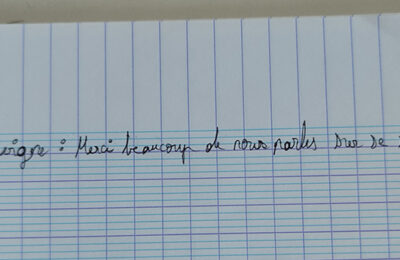 vigne : Merci beaucoup de nous parles sur de